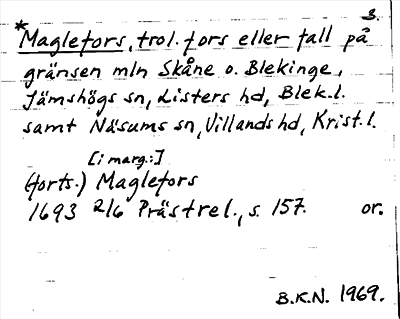 3.
*Maglefors, trol. fors eller fall på
gränsen mln Skåne o. Blekinge,
Jämshögs sn, Listers hd, Blek.l.
samt Näsums sn, Villands hd, Krist.l.
[i marg.:]
(forts.) Maglefors
1693 2/6 Prästrel., s. 157. or.
B.K.N. 1969.